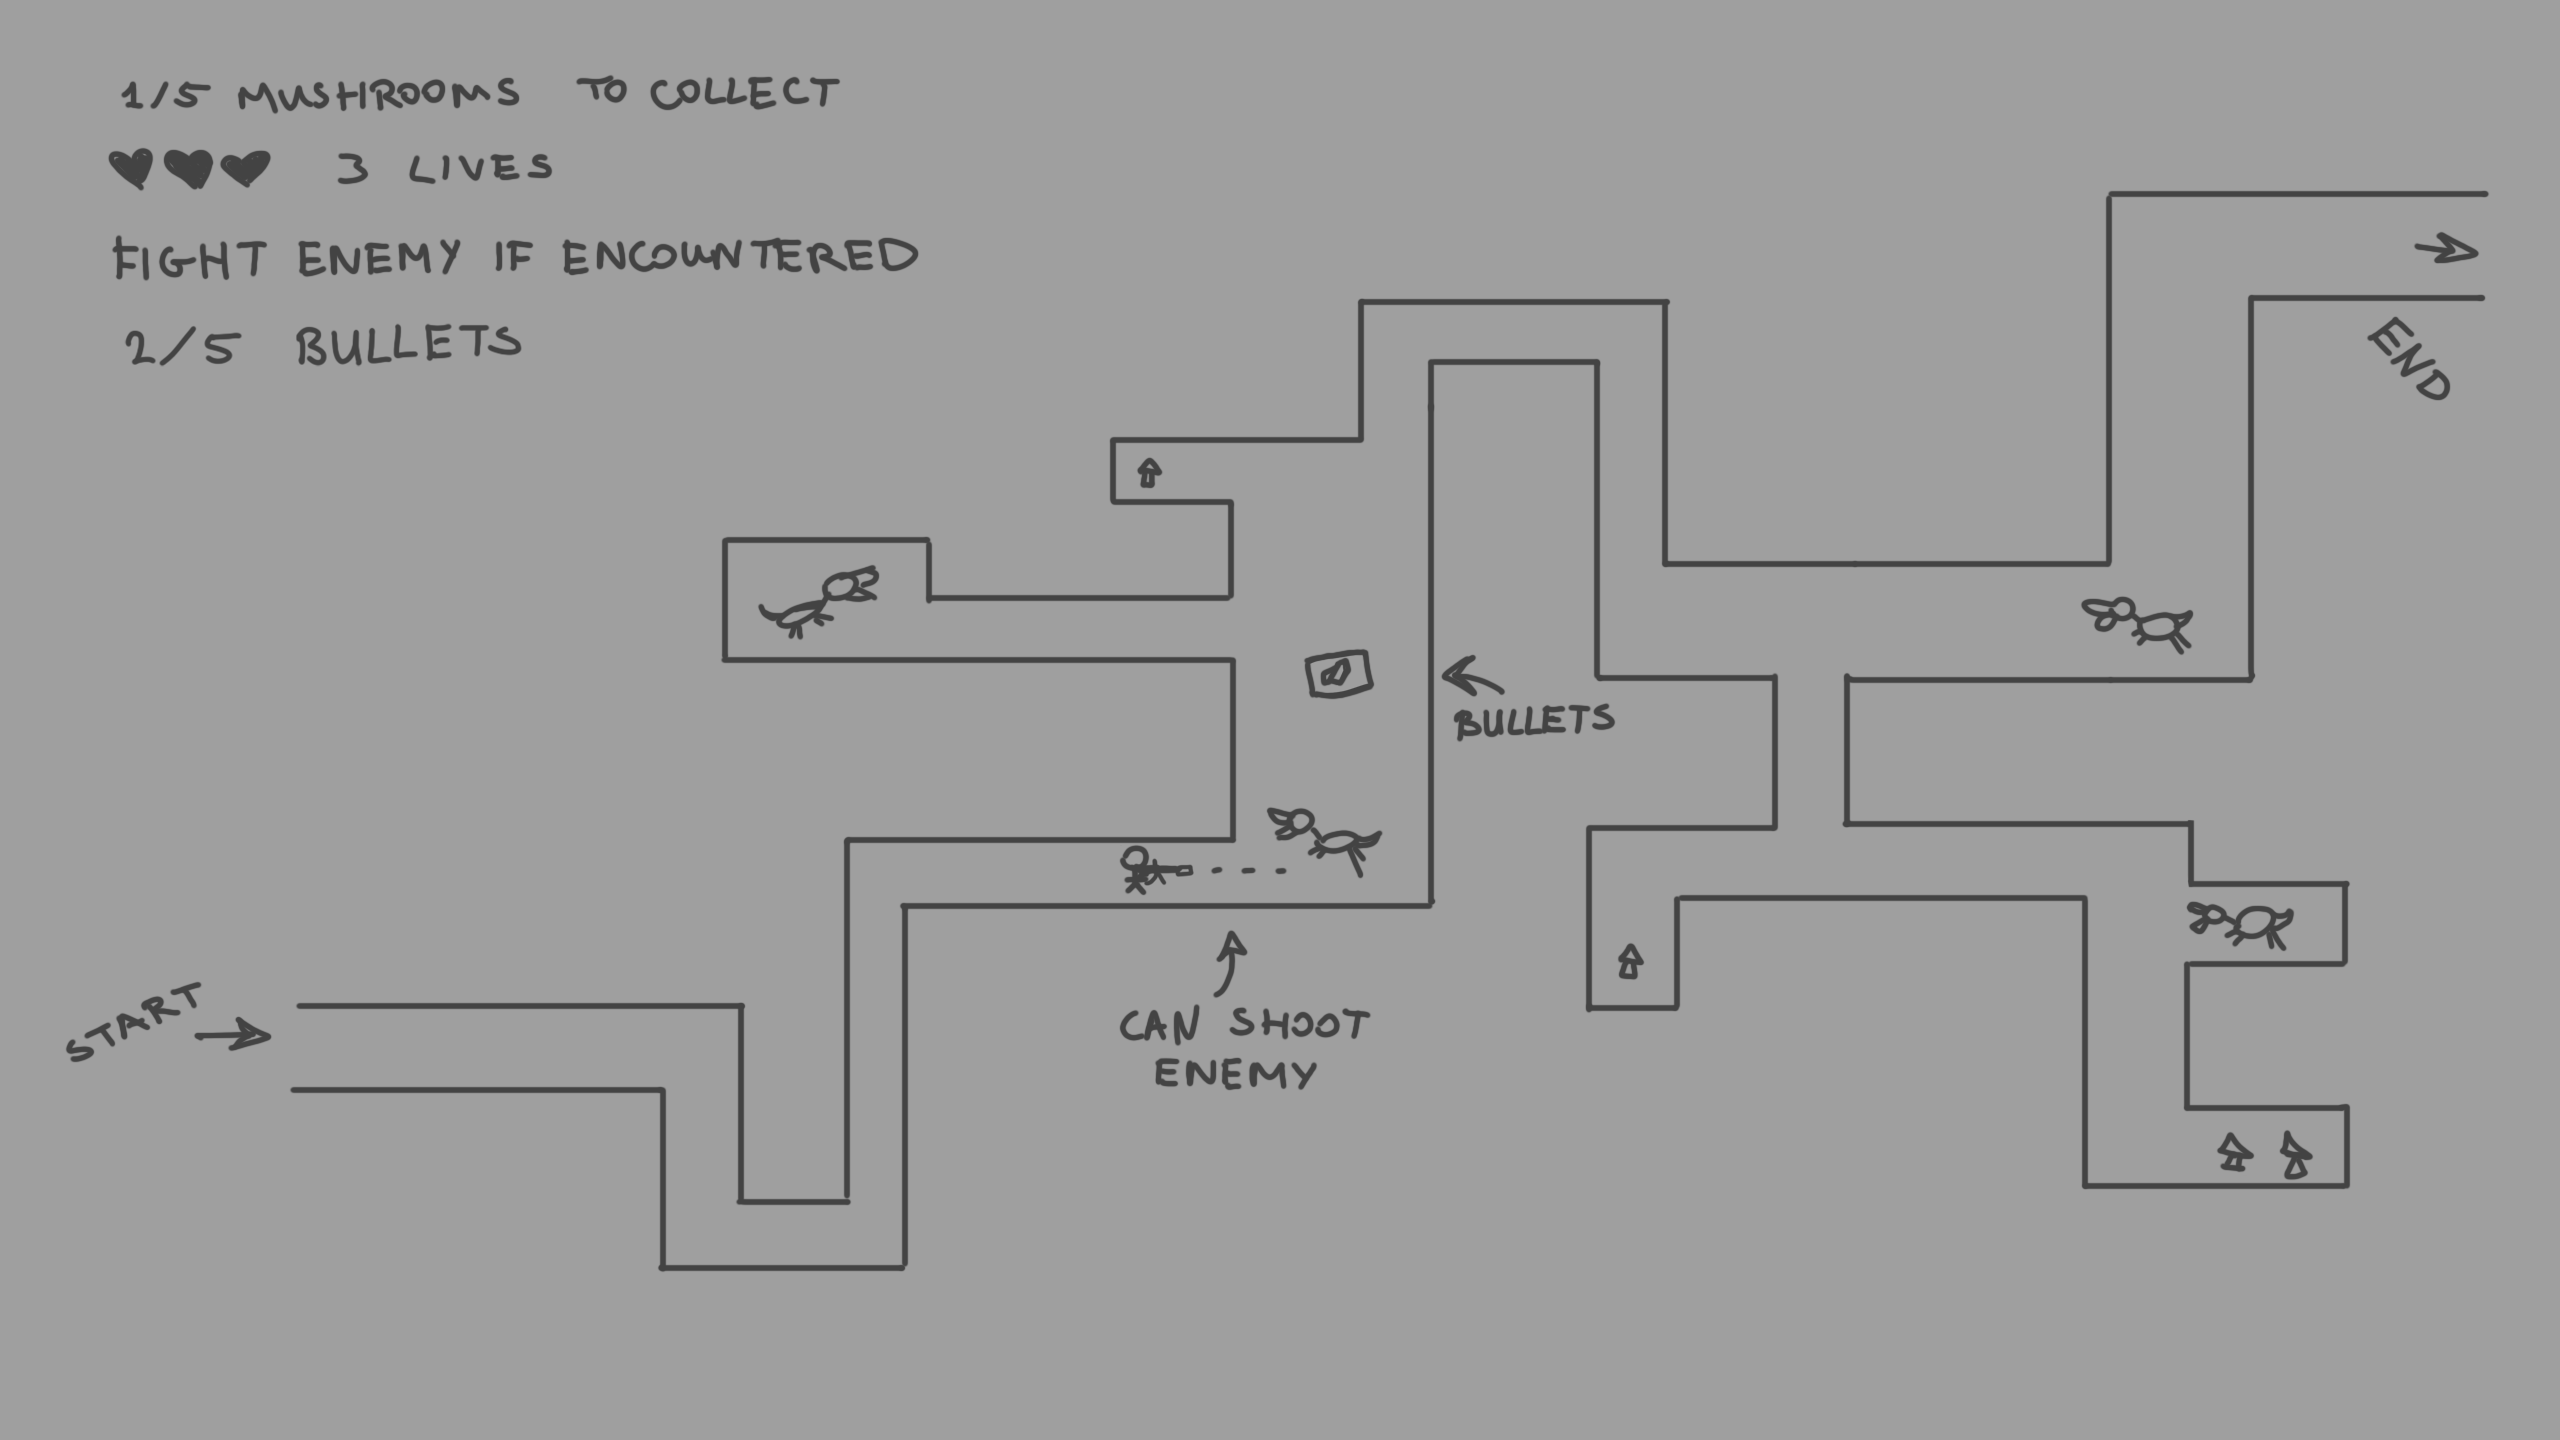 1/5 MUSHROOMS TO COLLECT
3 LIVES
FIGHT ENEMY IF ENCOUNTERED
2/5 BULLETS
END
BULLETS
START
CAN SHOOT
ENEMY